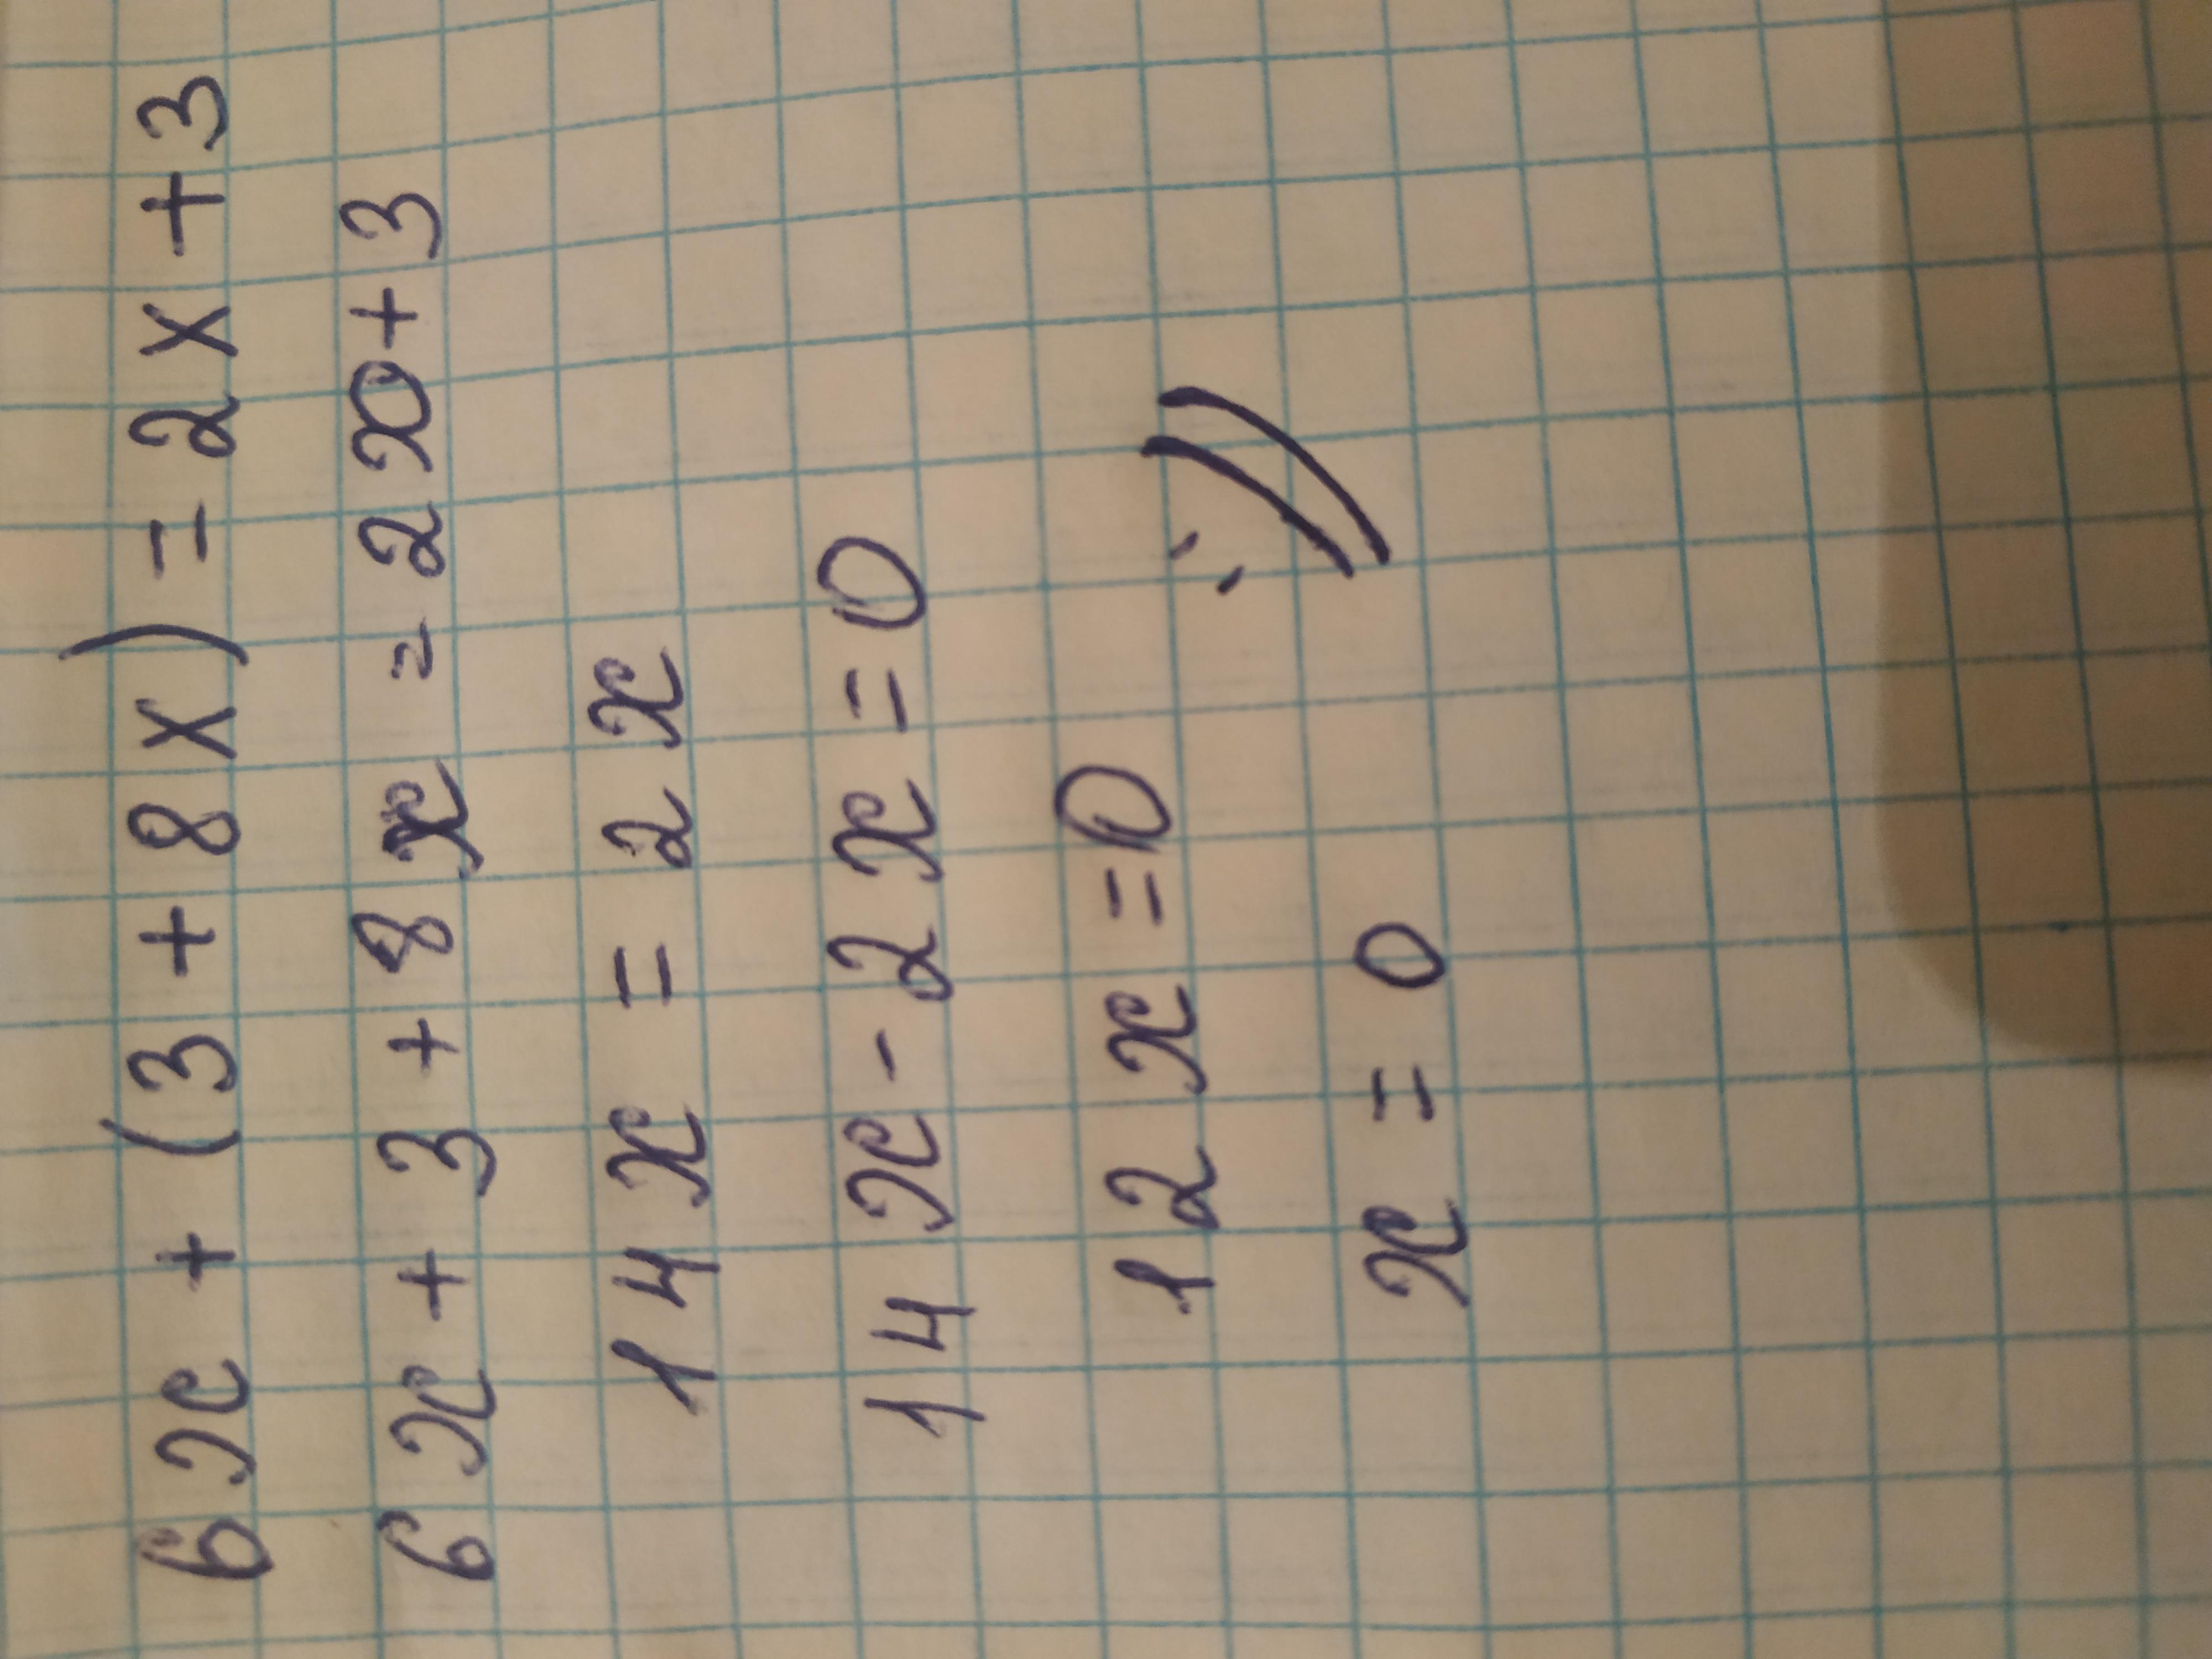 6x + (3 + 8x) = 2x + 3
6x + 3 + 8x = 2x + 3
14x = 2x
14x - 2x = 0
12x = 0
x = 0
:))